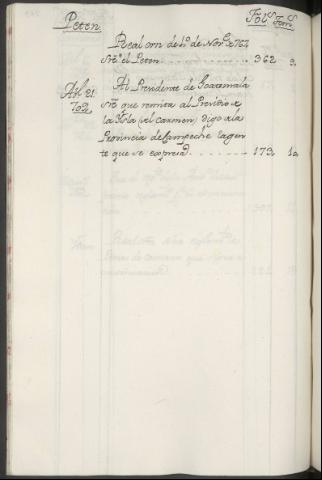 Peten Fol.s Tom.s
Real orn de 1.º de Nov.re 764
sre. el Peten 362 2,
Al Presidente de Goatemala
sre. que remita al Presidio de
la Ysla del Carmen, digo a la
Provincia de Campeche la gen
te que se expresa 173, 12,